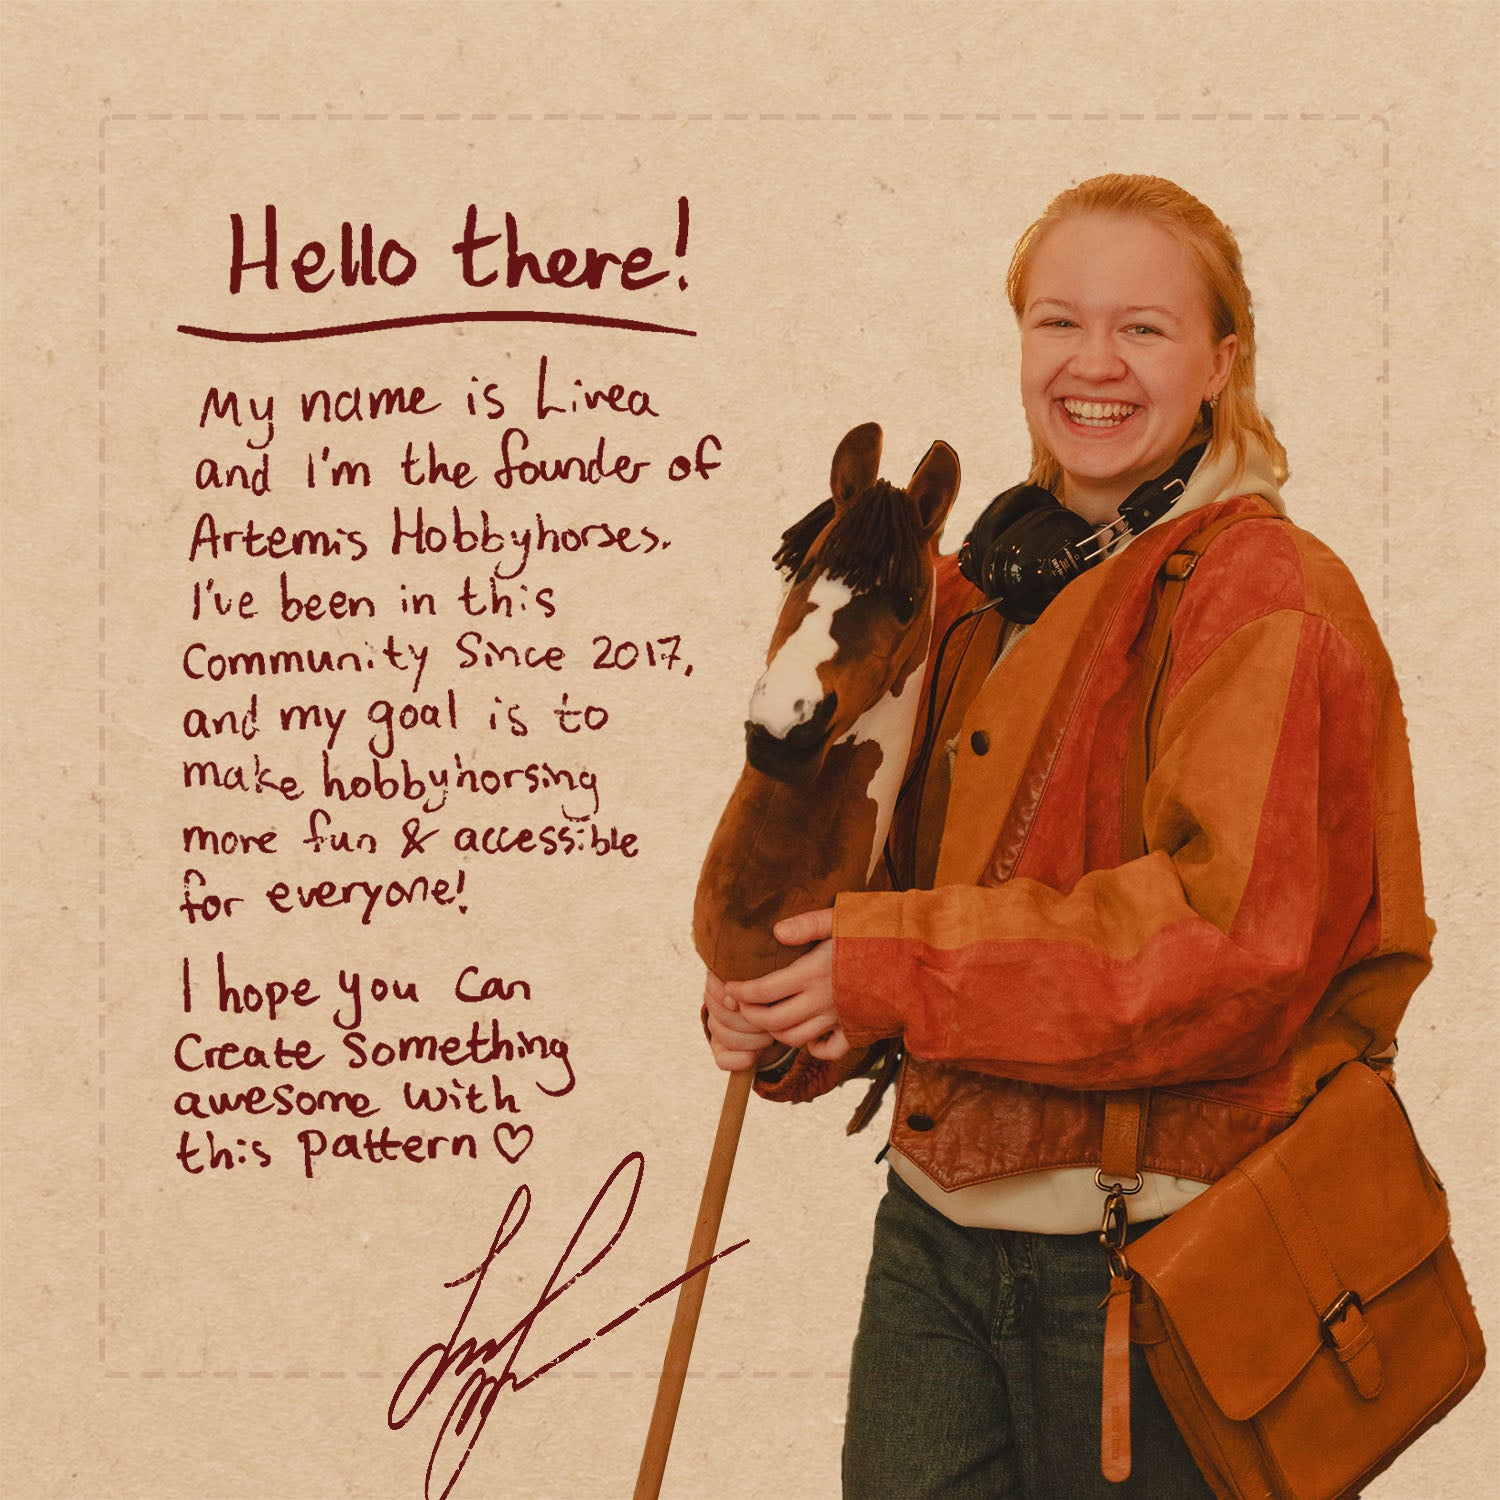 Hello there!
My name is Livea
and I'm the founder of
Artemis Hobbyhorses.
I've been in this
Community Since 2017,
and my goal is to
make hobbyhorsing
more fun & accessible
for everyone!
I hope you can
Create Something
awesome with
this pattern ♡